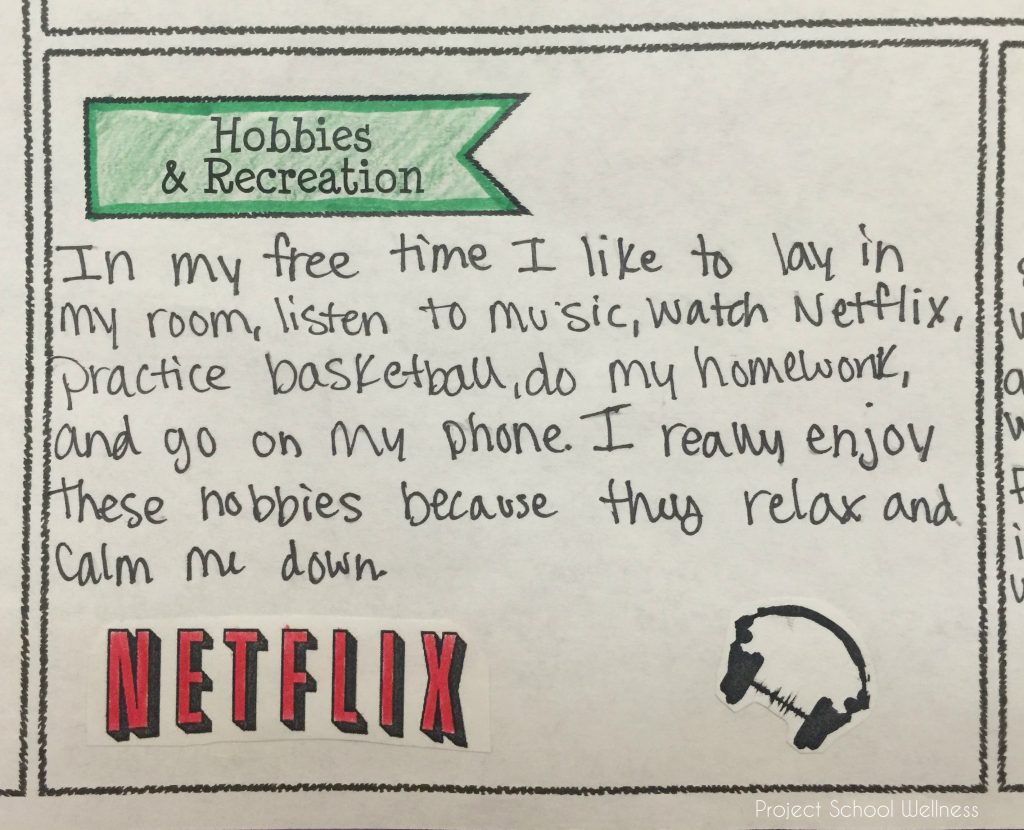 Hobbies
& Recreation
In my free time I like to lay in
my room, listen to music, watch Netflix,
practice basketball, do my homework,
and go on my phone. I really enjoy
these hobbies because they relax and
calm me down.
NETFLIX
Project School Wellness